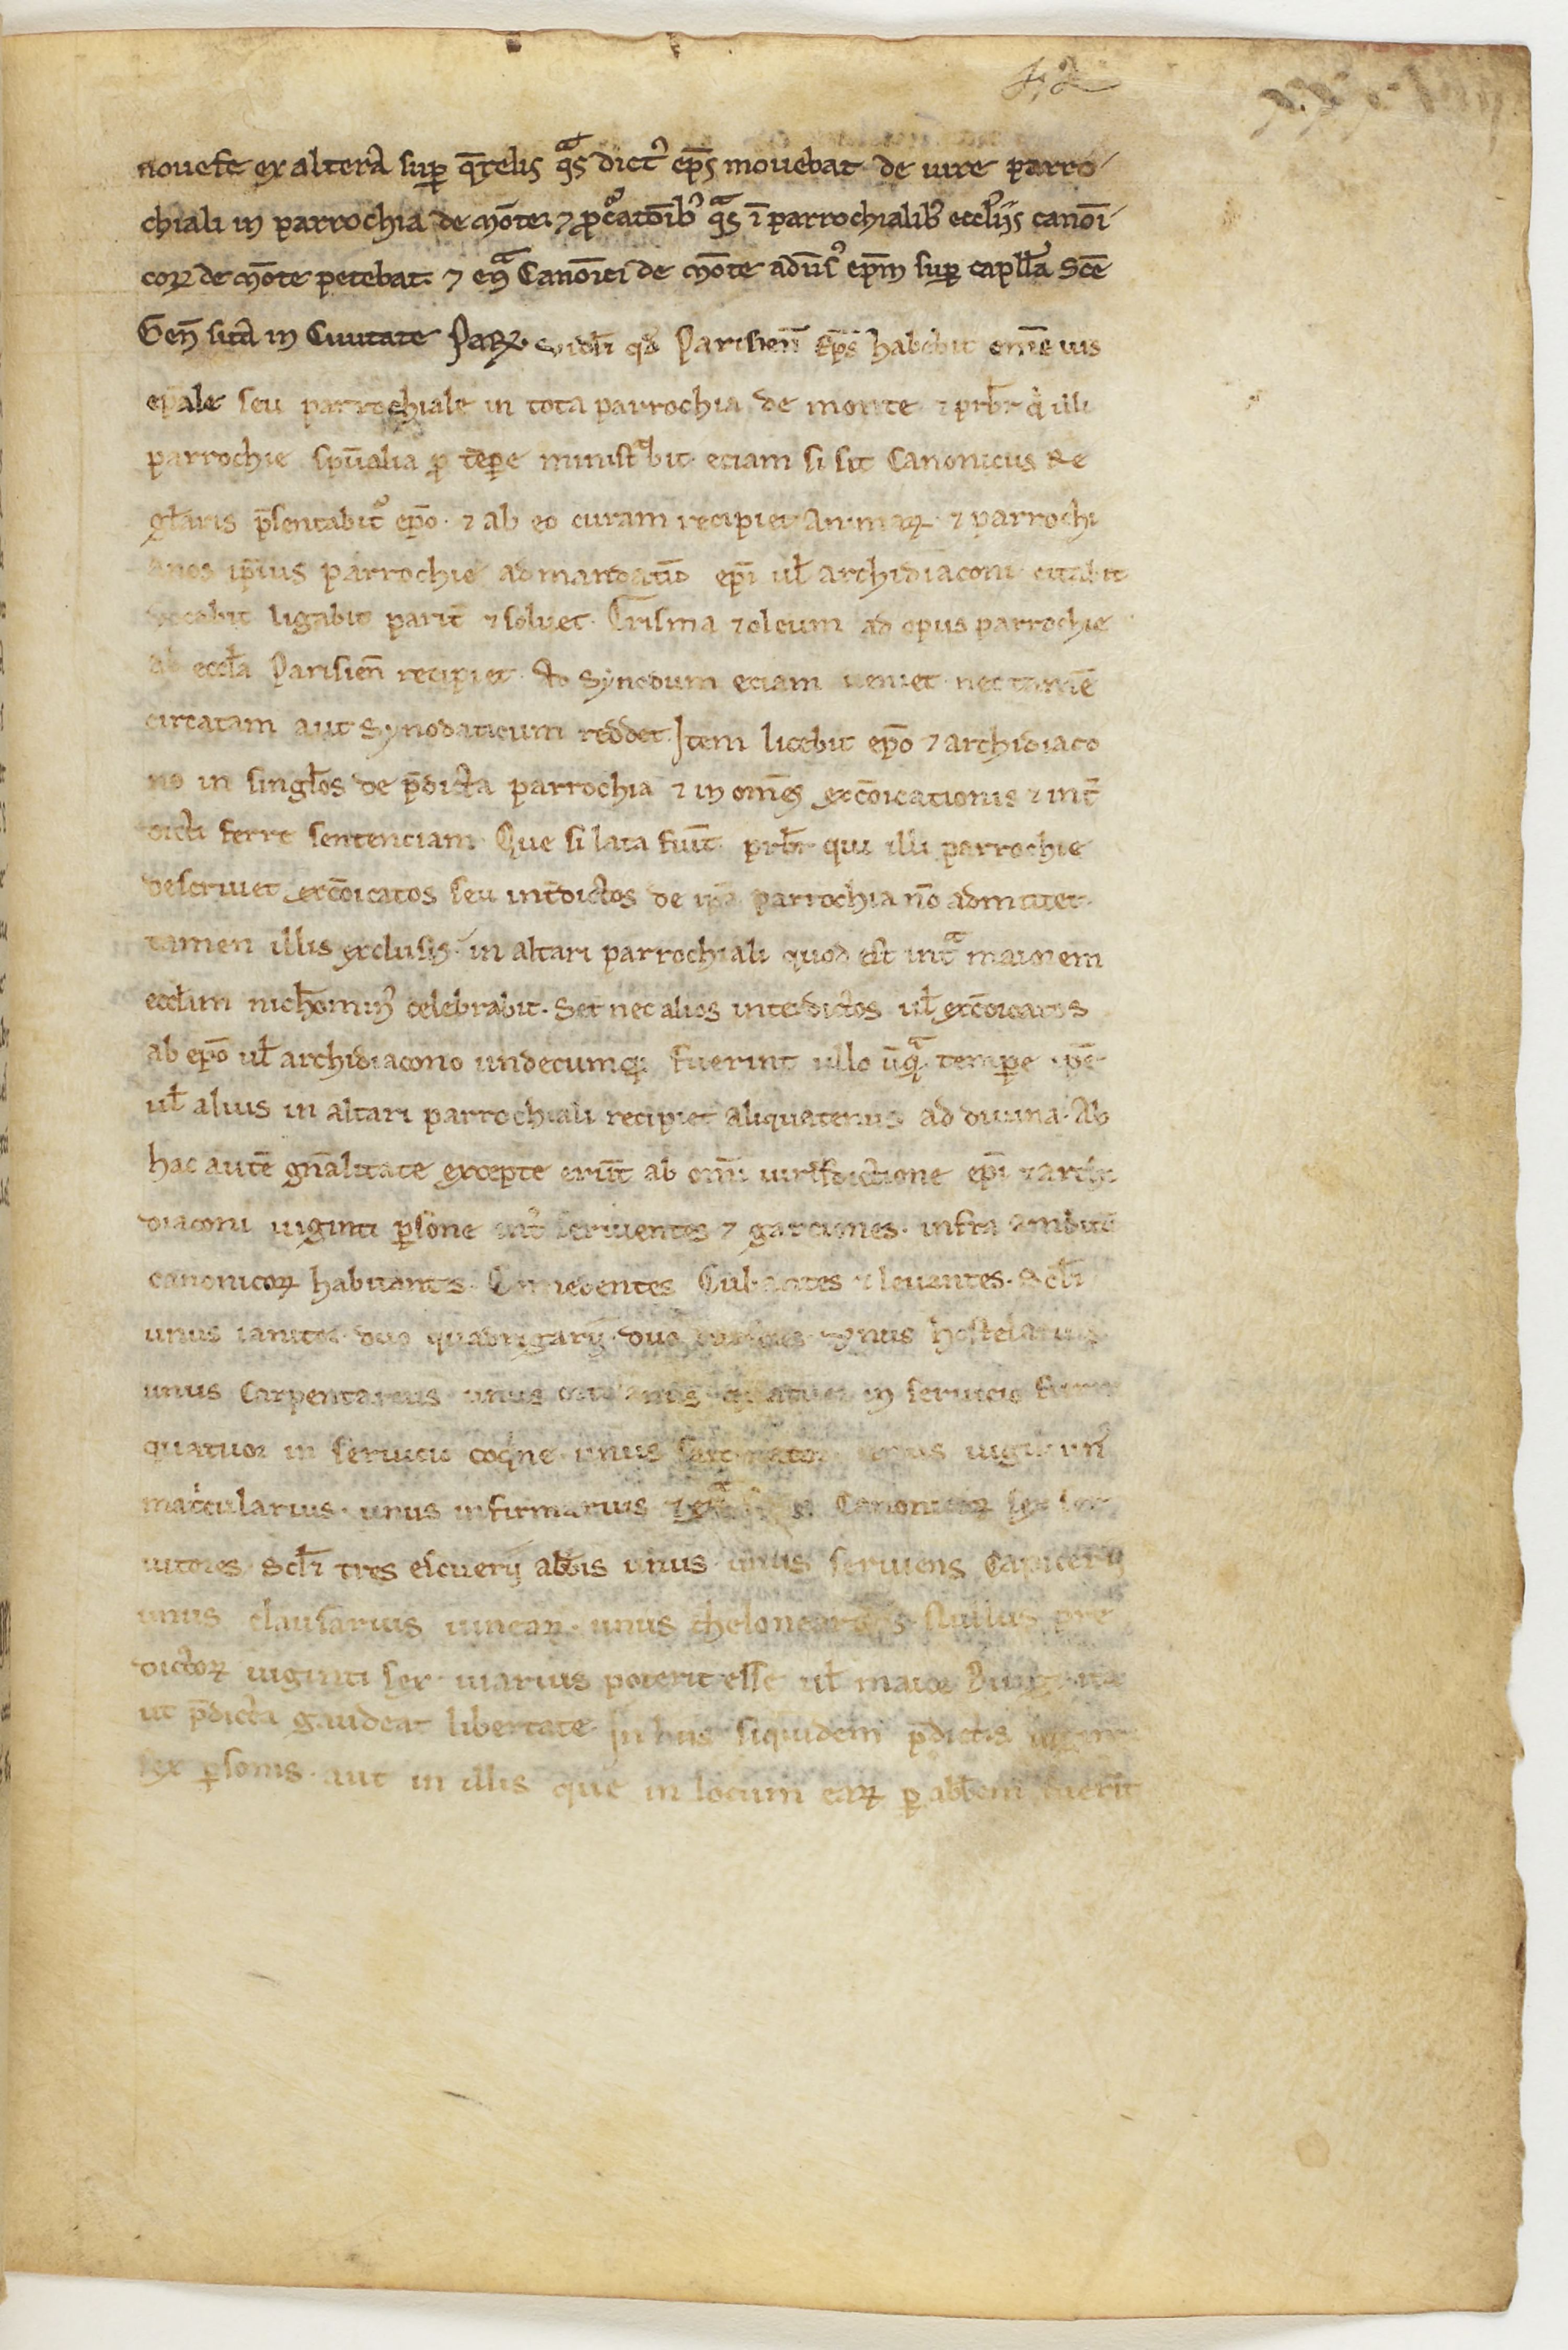 42
nouefe ex altera sup̱ q̄relis q̄ᵃs dictꝰ ep̄s mouebat de iure parro-
chiali in parrochia de mōte. ⁊ ꝓcᵒatōibꝰ q̄ᵃs ī parrochialibꝰ eccl̓iis canoī-
coꝝ de mōte petebat. ⁊ ꝯᵃ Canoīci de mōte adūsꝰ ep̄m sup̱ capll̓a Sc̄e
Gen̄ sita in Ciuitate Paꝝ. vidl̓i qd̓ Parisien̄ ep̄s habebit om̄e ius
ep̄ale seu parrochiale in tota parrochia de monte ⁊ prb̓r q̇ illi
parrochie sp̄ualia ꝓ tēpe̱ minist̓bit. eciam si sit Canonicus Re
gl̓aris p̄sentabitᵒ ep̄o. ⁊ ab eo curam recipiet animaꝝ. ⁊ parrochi
anos ip̄ius parrochie ad mandatū ep̄i ul̓ archidiaconi citabit
ligabit parit̄ ⁊ soluet. Crisma ⁊ oleum ad opus parrochie
ab eccl̓a Parisien̄ recipiet. Ad Synodum eciam ueniet. nec tamē
circatam aut Synodaticum reddet. Item licebit ep̄o ⁊ archidiaco
no in singl̓os de p̄dicta parrochia ⁊ in om̄es exc̄oicationis ⁊ int̄
dicti ferre sentenciam. Que si lata fūit. prb̓r qui illi parrochie
deseruiet exc̄oicatos seu int̄dictos de ip̄a parrochia nō admittet.
tamen illis exclusis. in altari parrochiali quod est intᵃ maiorem
eccl̓im nichōminꝰ celebrabit. Set nec alios interdictos ul̓ exc̄oicatos
ab ep̄o ul̓ archidiacono undecumqꝫ fuerint ullo ūqᵃ tempe̱ ip̄e
ul̓ alius in altari parrochiali recipiet aliquatenus ad diuina. Ab
hac autē gn̄alitate excepte erūt ab om̄i iurisdictione ep̄i ⁊ archi
diaconi uiginti ꝑsone int̓ seruientes ⁊ garciones. infra ambitū
canonicoꝝ habitantes. Comedentes Cubantes ⁊ leuantes. scl̓i
unus ianitor. duo quadrigarij. duo unus hostelarius
unus Carpentarius unus in seruicio
quatuor in seruicio coq̇ne. unus uigil. un̄
mat̓cularius. unus infirmarius Canonicoꝝ sex ser
uitores. Scl̓i tres escuerij abb̄is unus unus seruiens Capicerij
unus clausarius uineaꝝ. unus thelonearius. Nullus pre
dictoꝝ uiginti sex. uiarius poterit esse ul̓ maior
ut p̄dicta gaudeat libertate In hiis siquidem p̄dictis
sex ꝑsonis. aut in illis que in locum eaꝝ ꝑ abb̄em fuerīt